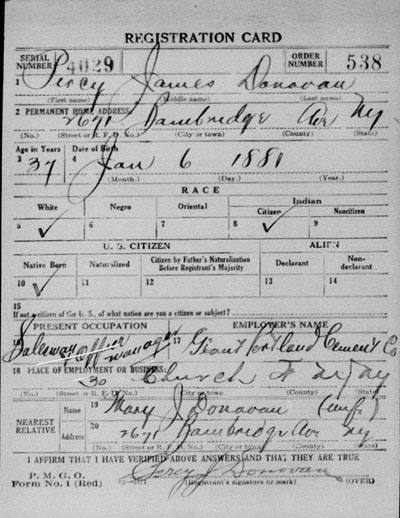 REGISTRATION CARD
SERIAL NUMBER 4029 ORDER NUMBER 538
1 Percy James Donovan
(First name) (Middle name) (Last name)
2 PERMANENT HOME ADDRESS:
2671 Bainbridge Ave Ny
(No.) (Street or R. F. D. No.) (City or town) (County) (State)
Age in Years Date of Birth
3 37 4 Jan 6 1881
(Month.) (Day.) (Year.)
RACE
White Negro Oriental Indian
Citizen Noncitizen
5 ✓ 6 7 8 ✓ 9
U. S. CITIZEN ALIEN
Native Born Naturalized Citizen by Father's Naturalization Before Registrant's Majority Declarant Non-declarant
10 ✓ 11 12 13 14
15
If not a citizen of the U. S., of what nation are you a citizen or subject?
PRESENT OCCUPATION EMPLOYER'S NAME
16 Salesman Office manager 17 Giant Portland Cement Co
18 PLACE OF EMPLOYMENT OR BUSINESS:
30 Church St Ny Ny
(No.) (Street or R. F. D. No.) (City or town) (County) (State)
NEAREST RELATIVE
Name 19 Mary J Donovan (wife)
Address 20 2671 Bainbridge Ave Ny
(No.) (Street or R. F. D. No.) (City or town) (County) (State)
I AFFIRM THAT I HAVE VERIFIED ABOVE ANSWERS AND THAT THEY ARE TRUE
P. M. G. O.
Form No. 1 (Red) Percy J Donovan
(Registrant's signature or mark) (OVER)